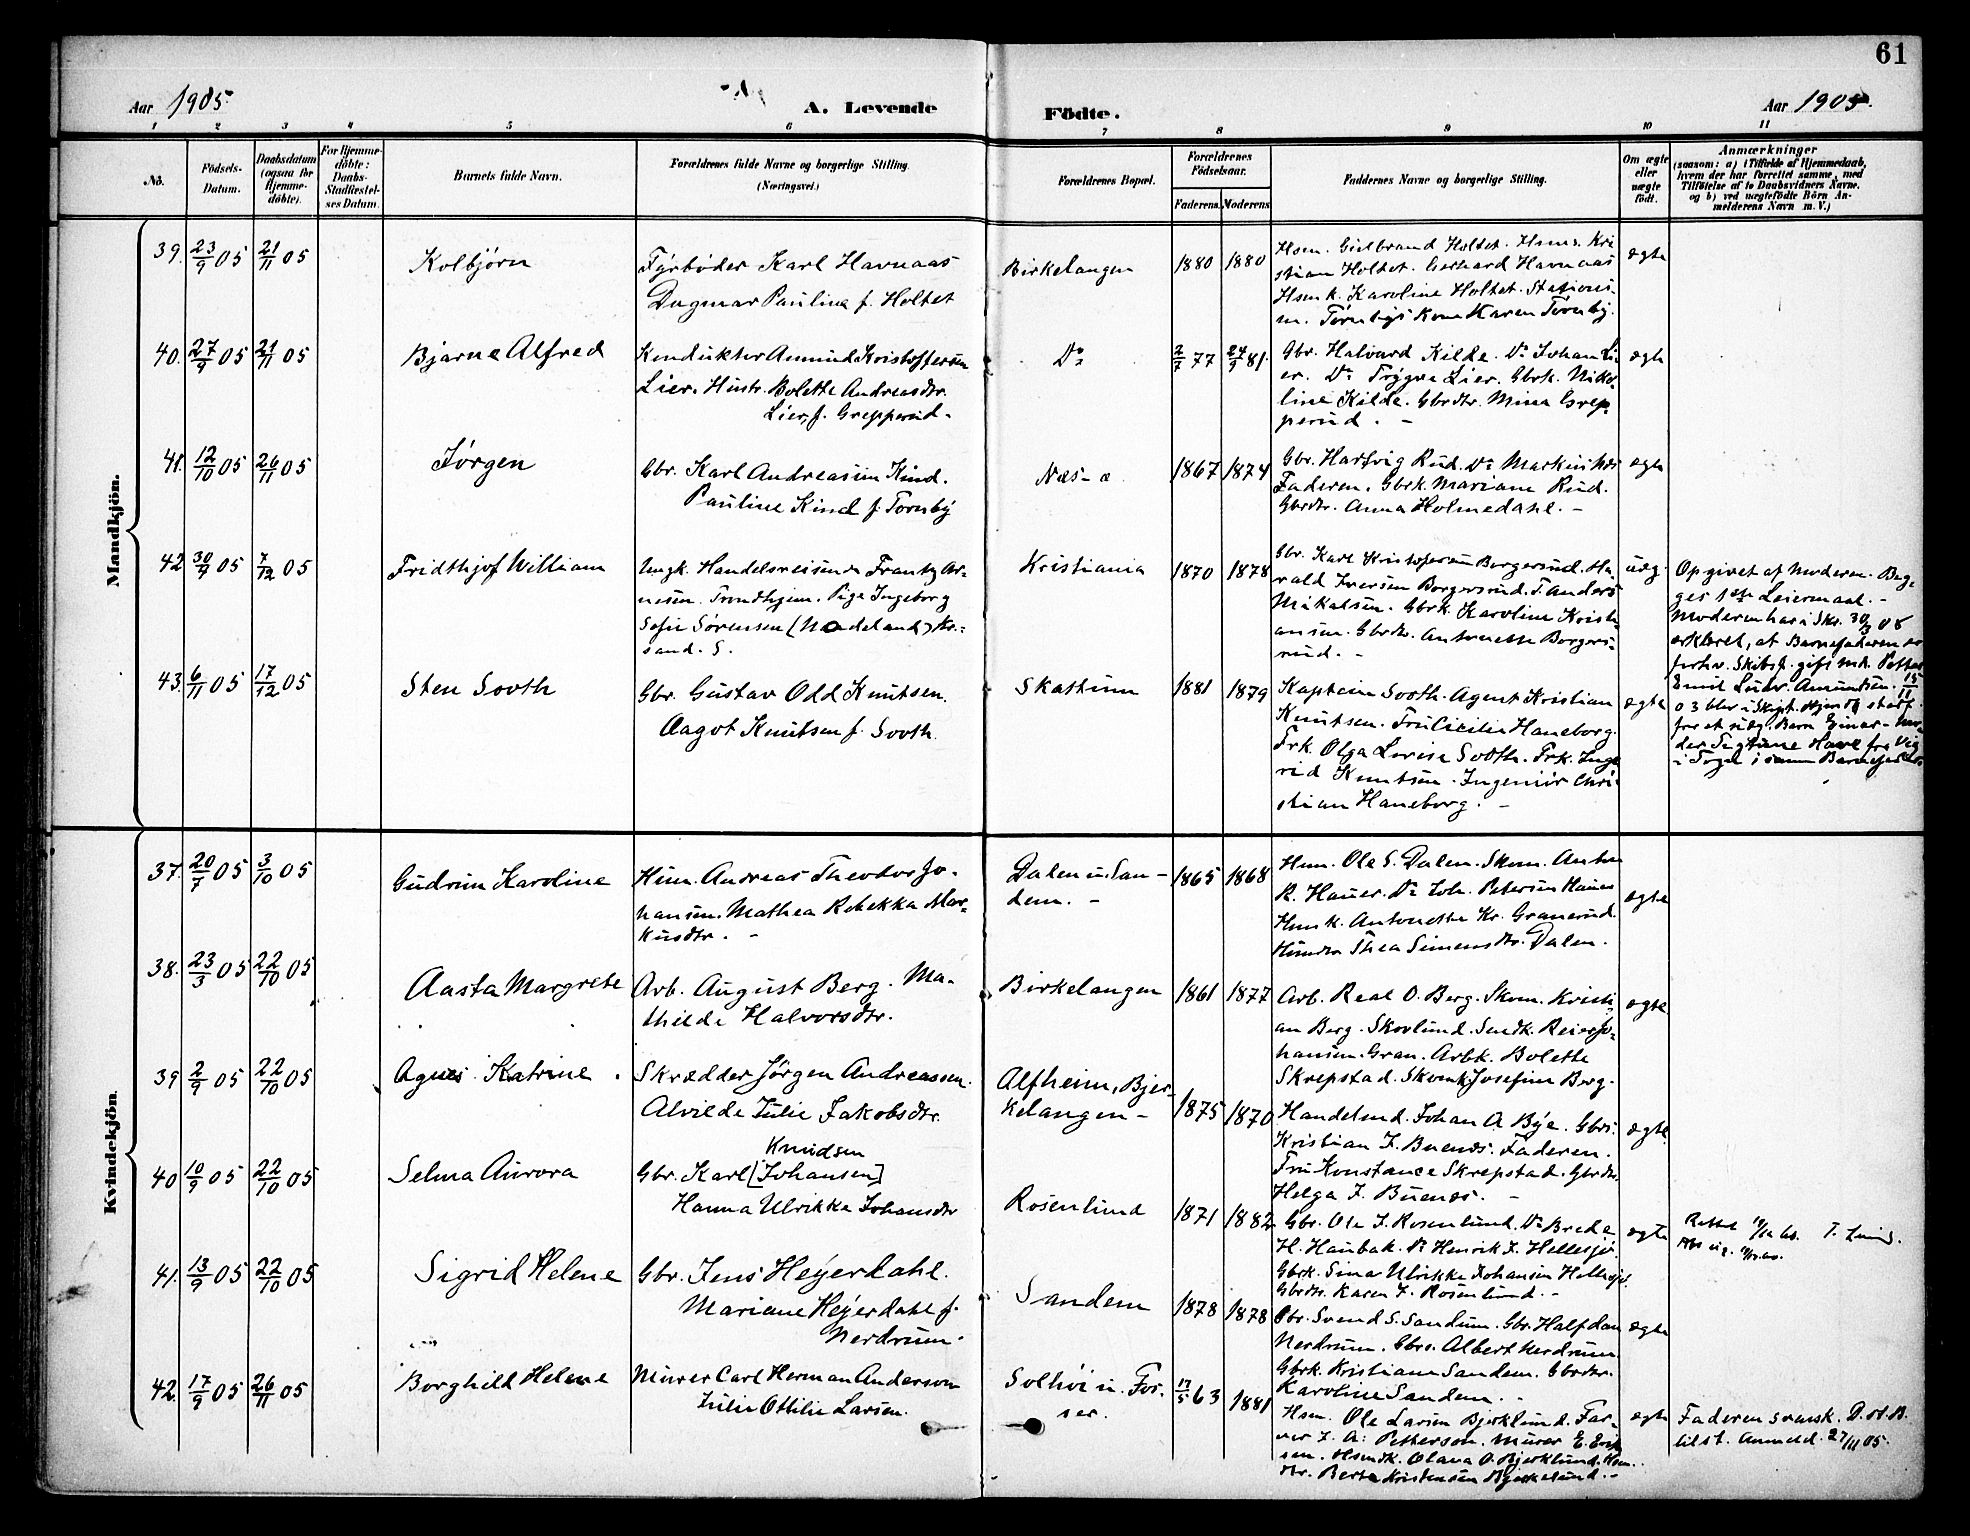 61
Aar 1905.
A. Levende
Födte.
Aar 1905.
1 2 3 4 5 6 7 8 9 10 11
No.
Födsels-
Datum.
Daabsdatum
(ogsaa for
Hjemme-
döbte).
For Hjemme-
döbte:
Daabs-
Stadfæstel-
ses Datum.
Barnets fulde Navn.
Forældrenes fulde Navne og borgerlige Stilling.
(Næringsvei.)
Forældrenes Bopæl.
Forældrenes
Födselsaar.
Faderens. Moderens.
Faddernes Navne og borgerlige Stilling.
Om ægte
eller
uægte
födt.
Anmærkninger
(saasom: a) i Tilfælde af Hjemmedaab,
hvem der har forrettet samme, med
Tilföielse af to Daabsvidners Navne.
og b) ved uægtefödte Börn An-
melderens Navn m. V.)
Mandkjön.
39. 23/9 05 21/11 05
Kolbjørn
Fyrbøder Karl Havnaas
Dagmar Pauline f. Holtet
Birkelangen
1880 1880
Hsm. Gulbrand Holtet. Hsms. Kri
stian Holtet. Gerhard Havnaas
Hsmk. Karoline Holtet. Stations-
m. Tørnbys Kone Karen Tørnby.
ægte
40. 27/9 05 21/11 05
Bjarne Alfred
Konduktør Amund Kristoffersen
Lier. Hustr. Bolette Andreasdtr.
Lier, f. Grepperud.
Do
2/7 77 24/9 81.
Gbr. Halvard Kilde. Do Johan Li
er. Do Trygve Lier. Gbrk. Niko-
line Kilde. Gbrdtr. Mina Grep-
perud. -
ægte
41. 12/10 05 26/11 05
Jørgen
Gbr. Karl Andreassen Kind.
Pauline Kind f. Tørnby
Næs-ø
1867 1874
Gbr. Hartvig Rud. Do Markus Næs
Faderen. Gbrk. Mariane Rud.
Gbrdtr. Anna Holmedahl. -
ægte
42 30/9 05 7/12 05
Fridthjof William
Ungk. Handelsreisende Frantz Ar-
nesen. Trondhjem. Pige Ingeborg
Sofie Sørensen (Nodeland) Kr.-
sand. S.
Kristiania
1870 1878
Gbr. Karl Kristofersen Borgersrud. Ha-
rald Iversen Borgersrud. T. Anders
Mikalsen. Gbrk. Karoline Kristi-
ansen. Gbrdtr. Antonette Borgers-
rud. -
uæg.
Opgivet af Moderen. Beg-
ges 1ste Leiermaal. -
Moderen har i Skr. 30/3 08
erklæret, at Barnefaderen er
forhv. Skibsf. gift mk. Petter
Emil Amundsen. 15/11
03 blev i Skipt.
for et uæg. Barn Einar - Mo-
der
i samme Barnefader
43. 6/11 05 17/12 05
Sten Sooth
Gbr. Gustav Odd Knutsen.
Aagot Knutsen f. Sooth.
Skattum
1881 1879
Kaptein Sooth. Agent Kristian
Knutsen. Fru Cicilie Haneborg.
Frk. Olga Lovise Sooth. Frk. Inge
rid Knutsen. Ingeniør Chri-
stian Haneborg. -
ægte
Kvindekjön.
37. 20/7 05 3/10 05
Gudrun Karoline
Hsm. Andreas Theodor Jo-
hansen. Mathea Rebekka Mar-
kusdtr. -
Dalen u. San-
dem. -
1865 1868
Hsm. Ole S. Dalen. Skom. Anton
R. Hauer. Do Joh. Petersen Hauer
Hsmk. Antonette Kr. Granerud.
Thea Simensdtr. Dalen.
ægte
38. 23/3 05 22/10 05
Aasta Margrete
Arb. August Berg. Ma-
thilde Halvorsdtr.
Birkelangen
1861 1877
Arb. Real O. Berg. Skom. Kristi-
an Berg. Skovlund. Smdk. Reier Jo-
hansen. Gran. Arbk. Bolette
Skrepstad. Skomk. Josefine Berg.
ægte
39 2/9 05 22/10 05
Agnes Katrine.
Skrædder Jørgen Andreassen.
Alvilde Julie Jakobsdtr.
Alfheim, Bjer-
kelangen -
1875 1870
Handelsmd. Johan A Bye. Gbrs.
Kristian J. Buenæs. Faderen.
Fru Konstance Skrepstad. Gbrdtr.
Helga J. Buenæs. -
ægte
40 10/9 05 22/10 05
Selma Aurora
Knudsen
Gbr. Karl [Johansen]
Hanna Ulrikke Johansdtr
Rosenlund
1871 1882
Gbr. Ole J. Rosenlund. Do Brede
H. Haubak. Do Henrik J. Hellesjø.
Gbrk. Sina Ulrikke Johansen Hellesjø.
Gbrdtr. Karen J. Rosenlund. -
ægte
Rettet
41. 13/9 05 22/10 05
Sigrid Helene
Gbr. Jens Heyerdahl.
Mariane Heyerdahl f.
Nerdrum.
Sandem
1878 1878
Gbr. Svend S. Sandum. Gbr. Halfdan
Nerdrum. Gbrs. Albert Nerdrum.
Gbrk. Kristiane Sandem. Gbrdtr.
Karoline Sandem. -
ægte
42. 17/9 05 26/11 05
Borghild Helene
Murer Carl Herman Anderson
Julie Ottilie Larsen.
Solhøi u. Fos-
ser.
17/5 63 1881
Hsm. Ole Larsen Bjerklund. Far-
ver J. A. Petterson. Murer E. Erik
sen. Hsmdk. Olava O. Bjerklund. Hsm.
dtr. Berta Kristensen Bjerkelund. -
ægte
Faderen svensk. D. st. B.
tilst. Anmeld. 27/11 05.